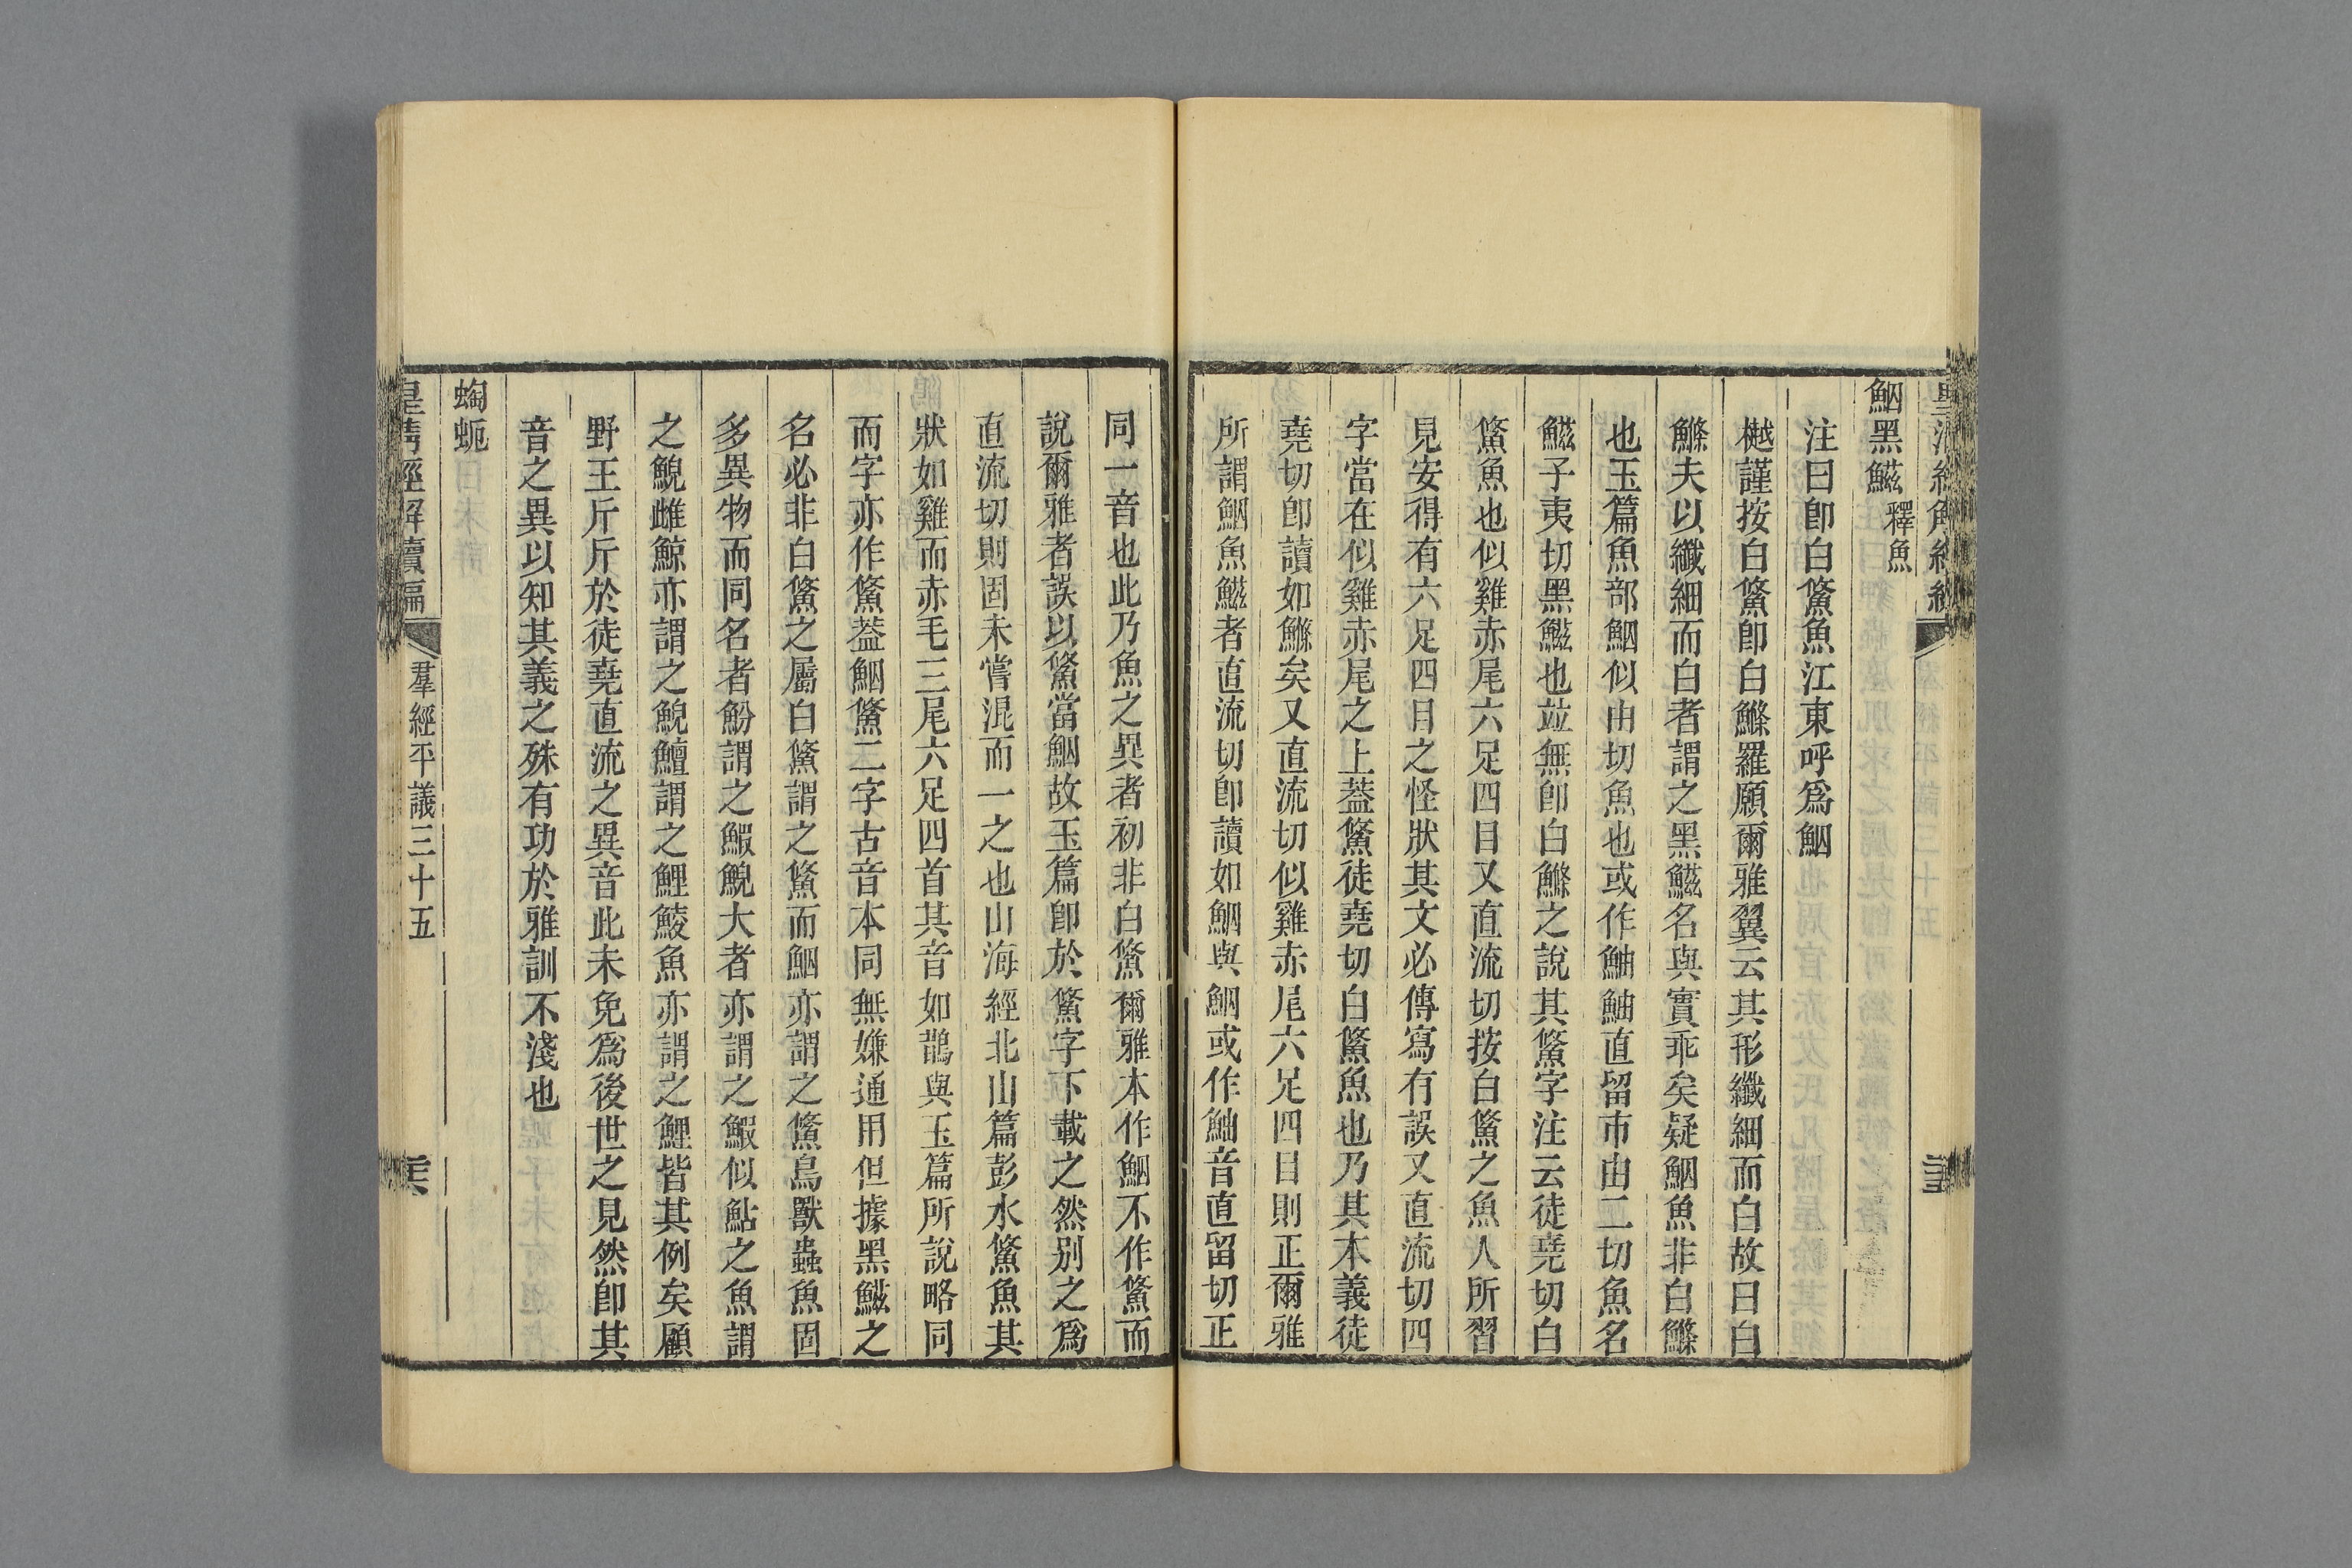 鮂黑鰦釋魚
注曰卽白鯈魚江東呼爲鮂
樾謹按白鯈卽白鰷羅願爾雅翼云其形纖細而白故曰白
鰷夫以纖細而白者謂之黑鰦名與實乖矣疑鮂魚非白鰷
也玉篇魚部鮂似由切魚也或作鮋鮋直留巿由二切魚名
鰦子夷切黑鰦也竝無卽白鰷之說其鯈字注云徒堯切白
鯈魚也似雞赤尾六足四目又直流切按白鯈之魚人所習
見安得有六足四目之怪狀其文必傳寫有誤又直流切四
字當在似雞赤尾之上葢鯈徒堯切白鯈魚也乃其本義徒
堯切卽讀如鰷矣又直流切似雞赤尾六足四目則正爾雅
所謂鮂魚鰦者直流切卽讀如鮂與鮂或作鮋音直留切正
同一音也此乃魚之異者初非白鯈爾雅本作鮂不作鯈而
說爾雅者誤以鯈當鮂故玉篇卽於鯈字下載之然別之爲
直流切則固未嘗混而一之也山海經北山篇彭水鯈魚其
狀如雞而赤毛三尾六足四首其音如鵲與玉篇所說略同
而字亦作鯈葢鮂鯈二字古音本同無嫌通用但據黑鰦之
名必非白鯈之屬白鯈謂之鯈而鮂亦謂之鯈鳥獸蟲魚固
多異物而同名者魵謂之鰕鯢大者亦謂之鰕似鮎之魚謂
之鯢雌鯨亦謂之鯢鱣謂之鯉鯪魚亦謂之鯉皆其例矣顧
野王斤斤於徒堯直流之異音此未免爲後世之見然卽其
音之異以知其義之殊有功於雅訓不淺也
蜪蚅
皇淸經解續編
羣經平議三十五